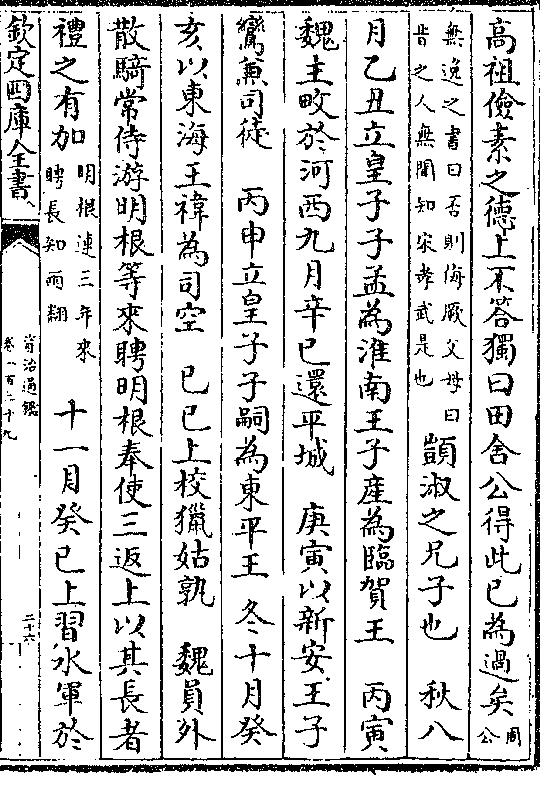 高祖儉素之德上不答獨曰田舍公得此已為過矣周公
無逸之書曰否則侮厥父母曰昔之人無聞知宋孝武是也顗淑之兄子也　秋八
月乙丑立皇子子孟為淮南王子產為臨賀王　丙寅
魏主畋於河西九月辛巳還平城　庚寅以新安王子
鸞兼司徒　丙申立皇子子嗣為東平王　冬十月癸
亥以東海王禕為司空　己巳上校獵姑孰　魏員外
散騎常侍游明根等來聘明根奉使三返上以其長者
禮之有加明根連三年來聘長知兩翻　十一月癸巳上習水軍於
欽定四庫全書
資治通鑑
卷一百二十九
二十六